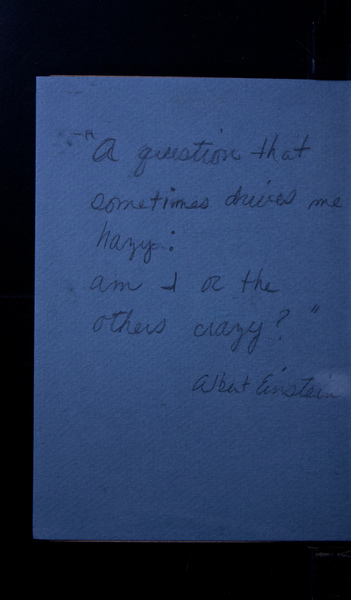 "A question that
sometimes drives me
hazy:
am I or the
others crazy?"
Albert Einstein